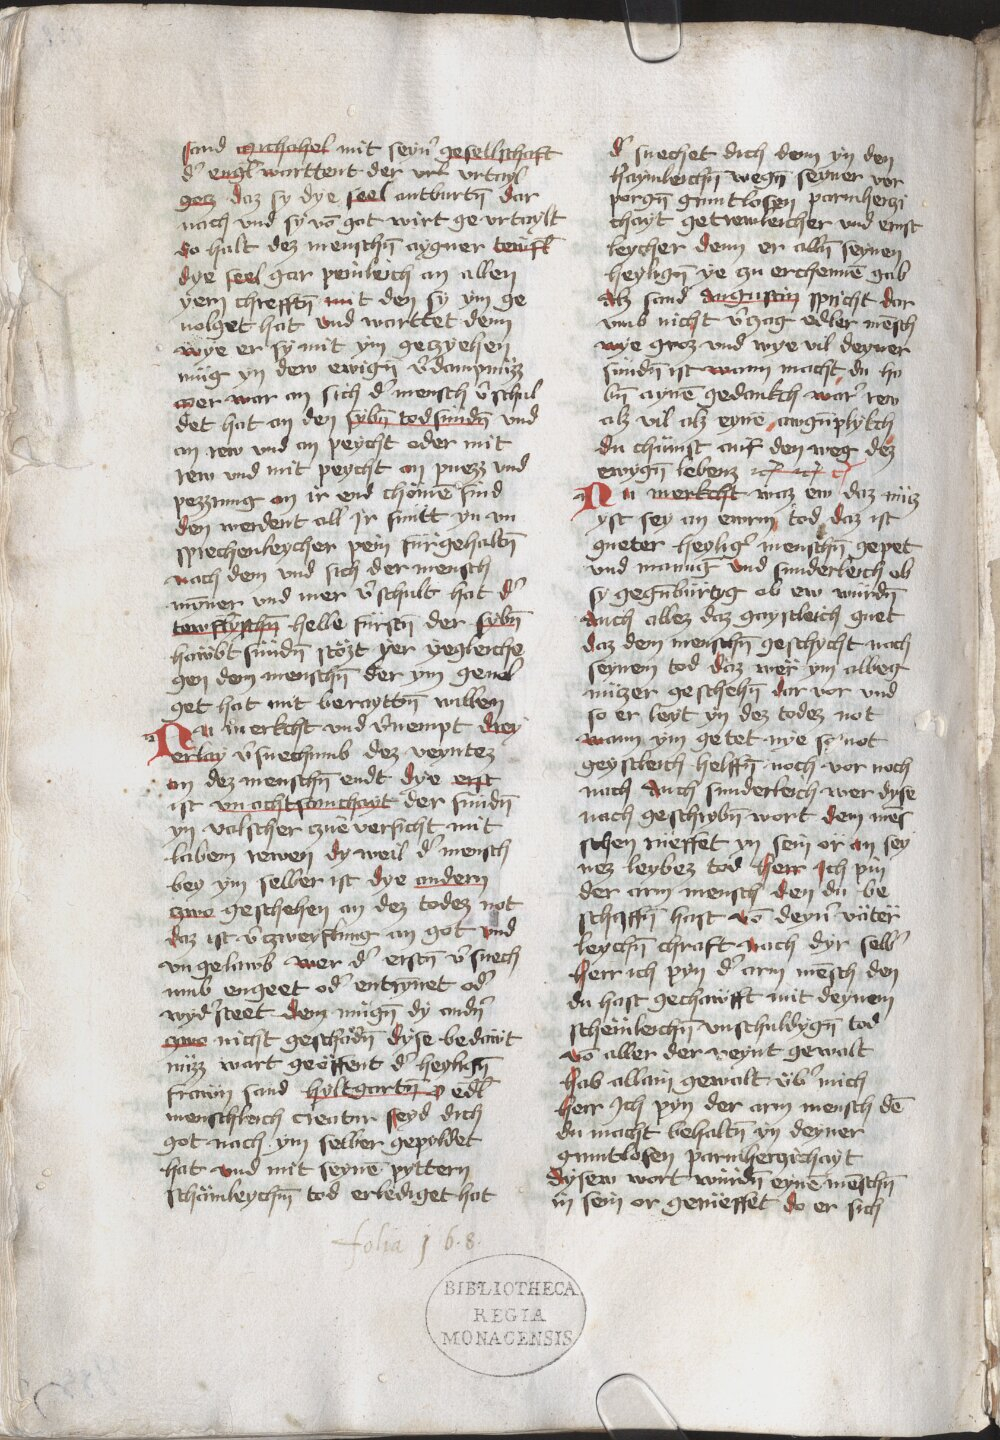 sand michahel mit seyn̄ gesellschaft
d' engl' warttent der vrtayl
gocz daz sy dye seel antburtn̄ dar
nach vnd sy vō got wirt ge vrtaylt
do halt dez menschn̄ aygner teufl
dye seel gar peinleich an allen
yern chrefftn̄ mit den sy ym ge
uolget hat vnd warttet denn
wye er sy mit ym geczyehen
müg yn dew ewign̄ v'dampnüzz
wer war an sich d' mensch v'schul
det hat an den sybn̄ todsündn̄ vnd
an rew vnd an peycht oder mit
rew vnd mit peycht an puezz vnd
pezzrung an ir end chömē sind
den werdent all jr sünd yn vn
sprechenleycher pein fürgehaltn̄
nach dem vnd sich der mensch
mynner vnd mer v'schult hat d'
tewfflyschn̄ helle fürstn̄ der sybn̄
hawbt sündn̄ stözt yer yegleiche
gen dem menschn̄ der ym geuol
get hat mit beraytten willen
Nu merkcht vnd v'nempt drey
erlay v'suechumb dez veyntez
an dez menschn̄ endt dye erst
ist vn achtsamchayt der sündn̄
yn valscher zue versicht mit
labem rewen dy weil d' mensch
bey ym selber ist dye andern
zwo geschehen an dez todez not
daz ist v'zweyflung an got vnd
vn gelawb wer d' erstn̄ v'suech
umb engeet od' entrynet od'
wyd'steet dem mügn̄ dy andn̄
zwo nicht geschadn̄ dyse bedawt
nüzz wart geöffent d' heylign̄
frawn sand hyltgartn̄ o edl'
menschleich creatur seyd dich
got nach ym selber gepildet
hat vnd mit seynē pyttern
schämleychn̄ tod erlediget hat
d' suechet dich denn yn den
haymleichn̄ wegn̄ seyner ver
porgn̄ gruntlosen parmherzi
chayt getrewleicher vnd ernst
leycher denn er alln̄ seynen
heylign̄ ye zu erchennē gab
Alz sand Augustin spricht dar
umb nicht v'zag edler mēsch
wye groz vnd wye vil deyner
sündn̄ ist wann macht du ho
bn̄ aynē gedankch war' rew
alz vil alz eynē awgn̄plykch
du chumst auf den weg dez
ewygn̄ lebenz
Nu merkcht waz ew daz nüz
yst sey an ewrm tod daz ist
gueter heylig' menschn̄ gepet
vnd manung vnd sunderleich ob
sy gegn̄bürtyg ob ew würdn̄
Auch allez daz gaystleich guet
daz dem menschn̄ geschycht nach
seynem tod daz wer ym albeg
nüczer geschehn̄ dar vor vnd
so er leyt yn dez todez not
wann ym getet nye so not
geystleich helffn̄ noch vor noch
nach Auch sunderleich wer dyse
nach geschrybn̄ wort dem men
schen rüeffet yn sein or an sey
nez leybez tod Herr Ich pin
der arm mensch den du be
schaffn̄ hast vō deyn' väter
leychn̄ chraft nach dyr selb'
Herr ich pyn d' arm mēsch den
du hast gechawfft mit deynem
schemleichn̄ vnschuldygn̄ tod
vō aller der veynt gewalt
hab allain gewalt üb' mich
herr Ich pyn der arm mensch dē
du macht behaltn̄ yn deyner
gruntlosen parmherzichayt
dysew wort würdn̄ eynē mēschn̄
in sein or gerüeffet do er sich
folia 168.
BIBLIOTHECA
REGIA
MONACENSIS